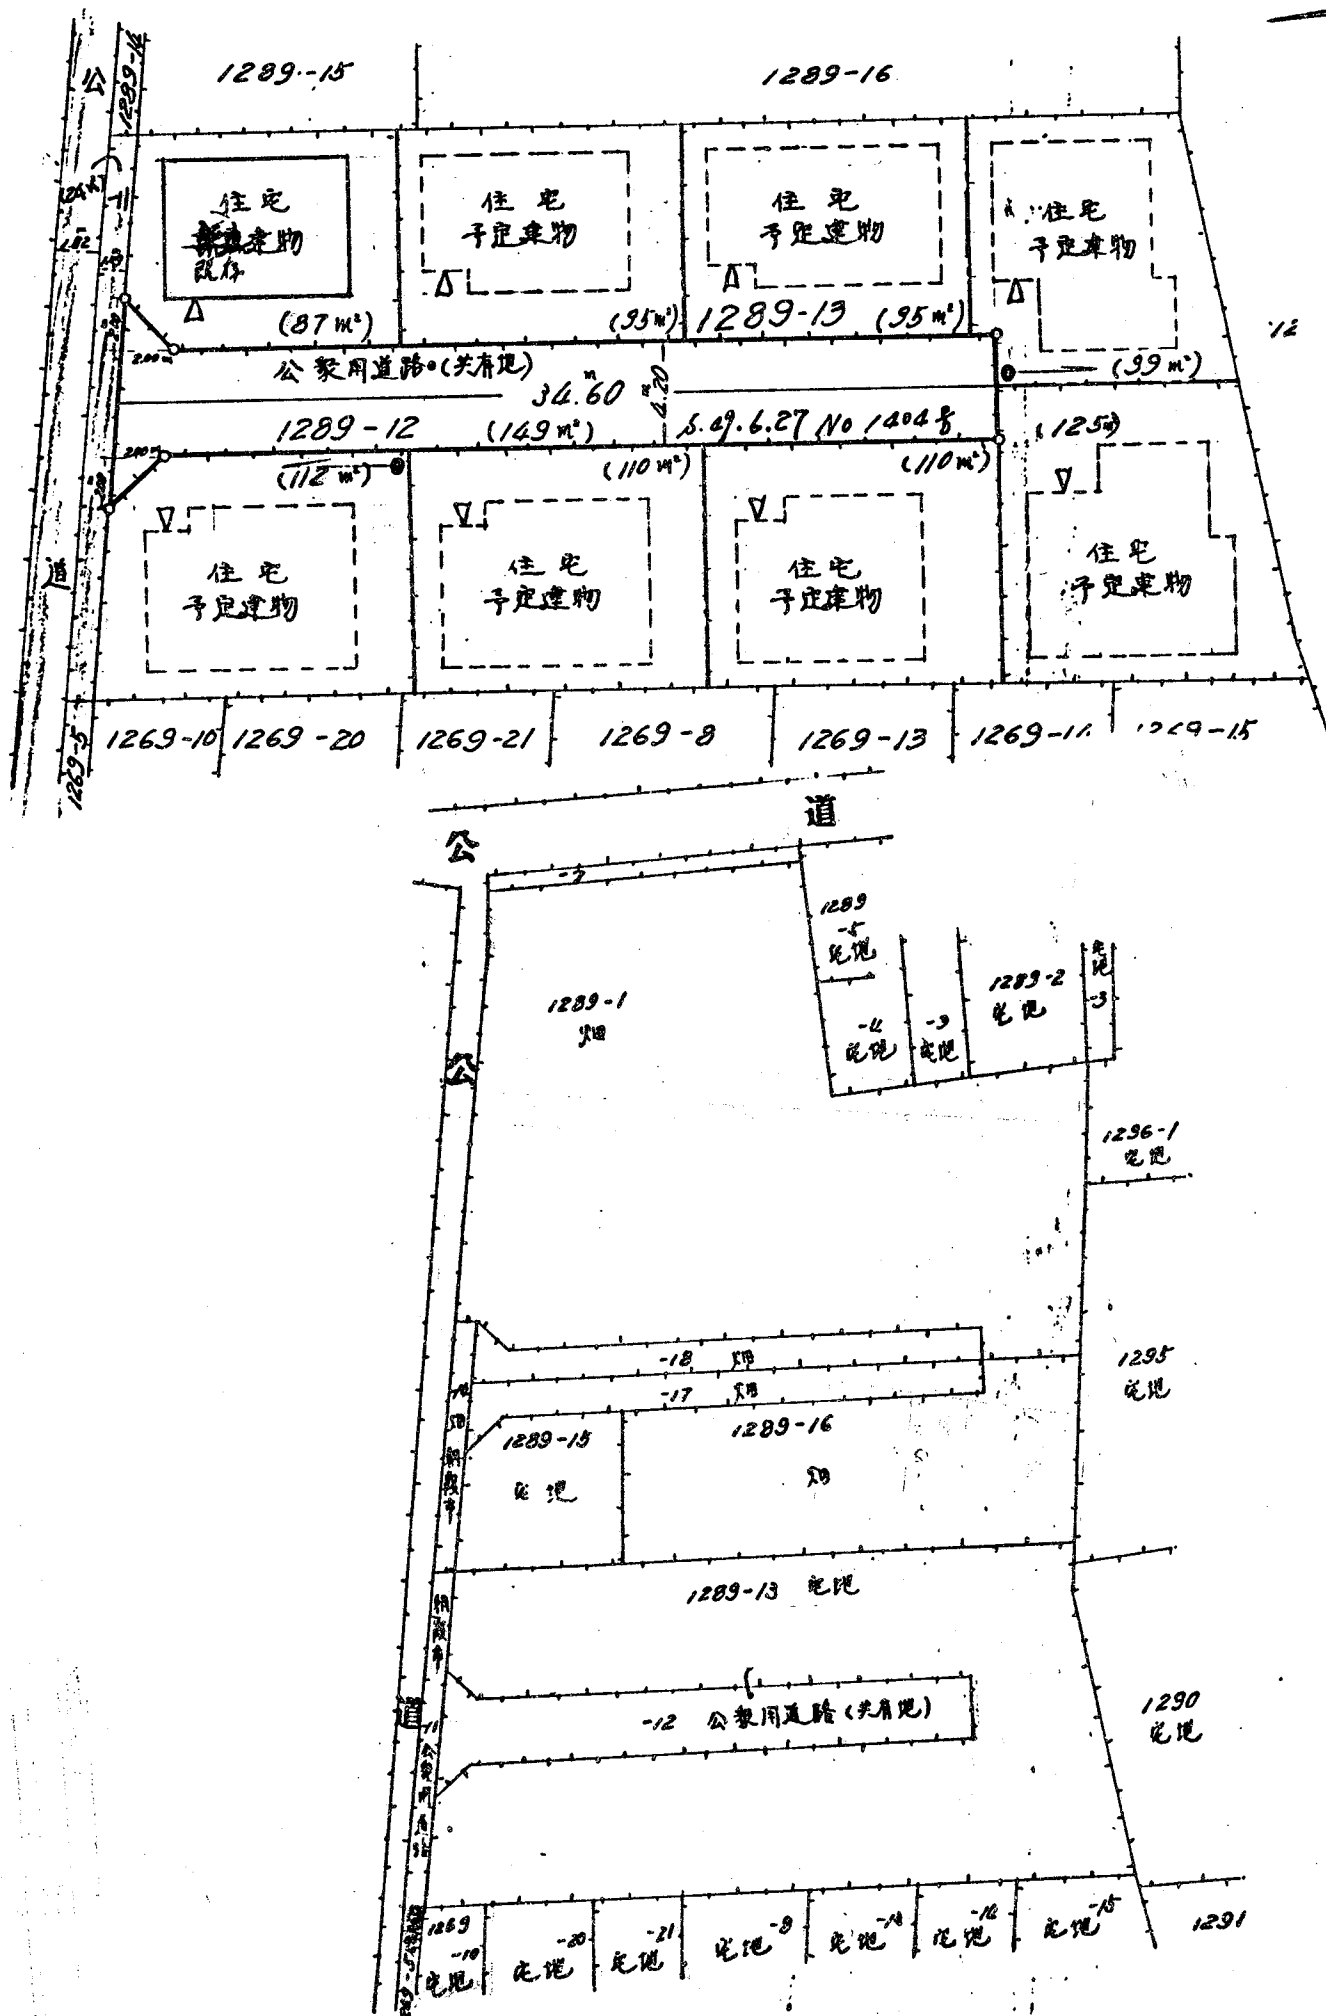 公
1289-14
1289-15
1289-16
住宅
建物
既存
住宅
予定建物
住宅
予定建物
住宅
予定建物
(87㎡)
(95㎡)
1289-13
(95㎡)
12
2.00m
公衆用道路(共有地)
34.60m
4.20m
(99㎡)
1289-12
(149㎡)
S.49.6.27 No 1404号
(125㎡)
(112㎡)
(110㎡)
(110㎡)
道
住宅
予定建物
住宅
予定建物
住宅
予定建物
住宅
予定建物
1269-5
1269-10
1269-20
1269-21
1269-8
1269-13
1269-15
公
道
-7
1289
-5
宅地
1289-1
畑
-4
宅地
-9
宅地
1289-2
宅地
宅地
-3
公
1296-1
宅地
-18 畑
-17 畑
1295
宅地
畑
朝霞市
1289-15
宅地
1289-16
畑
1289-13 宅地
朝霞市
道
-11
-12 公衆用道路(共有地)
1290
宅地
1269
-10
宅地
-20
宅地
-21
宅地
宅地
宅地
宅地
-15
宅地
1291